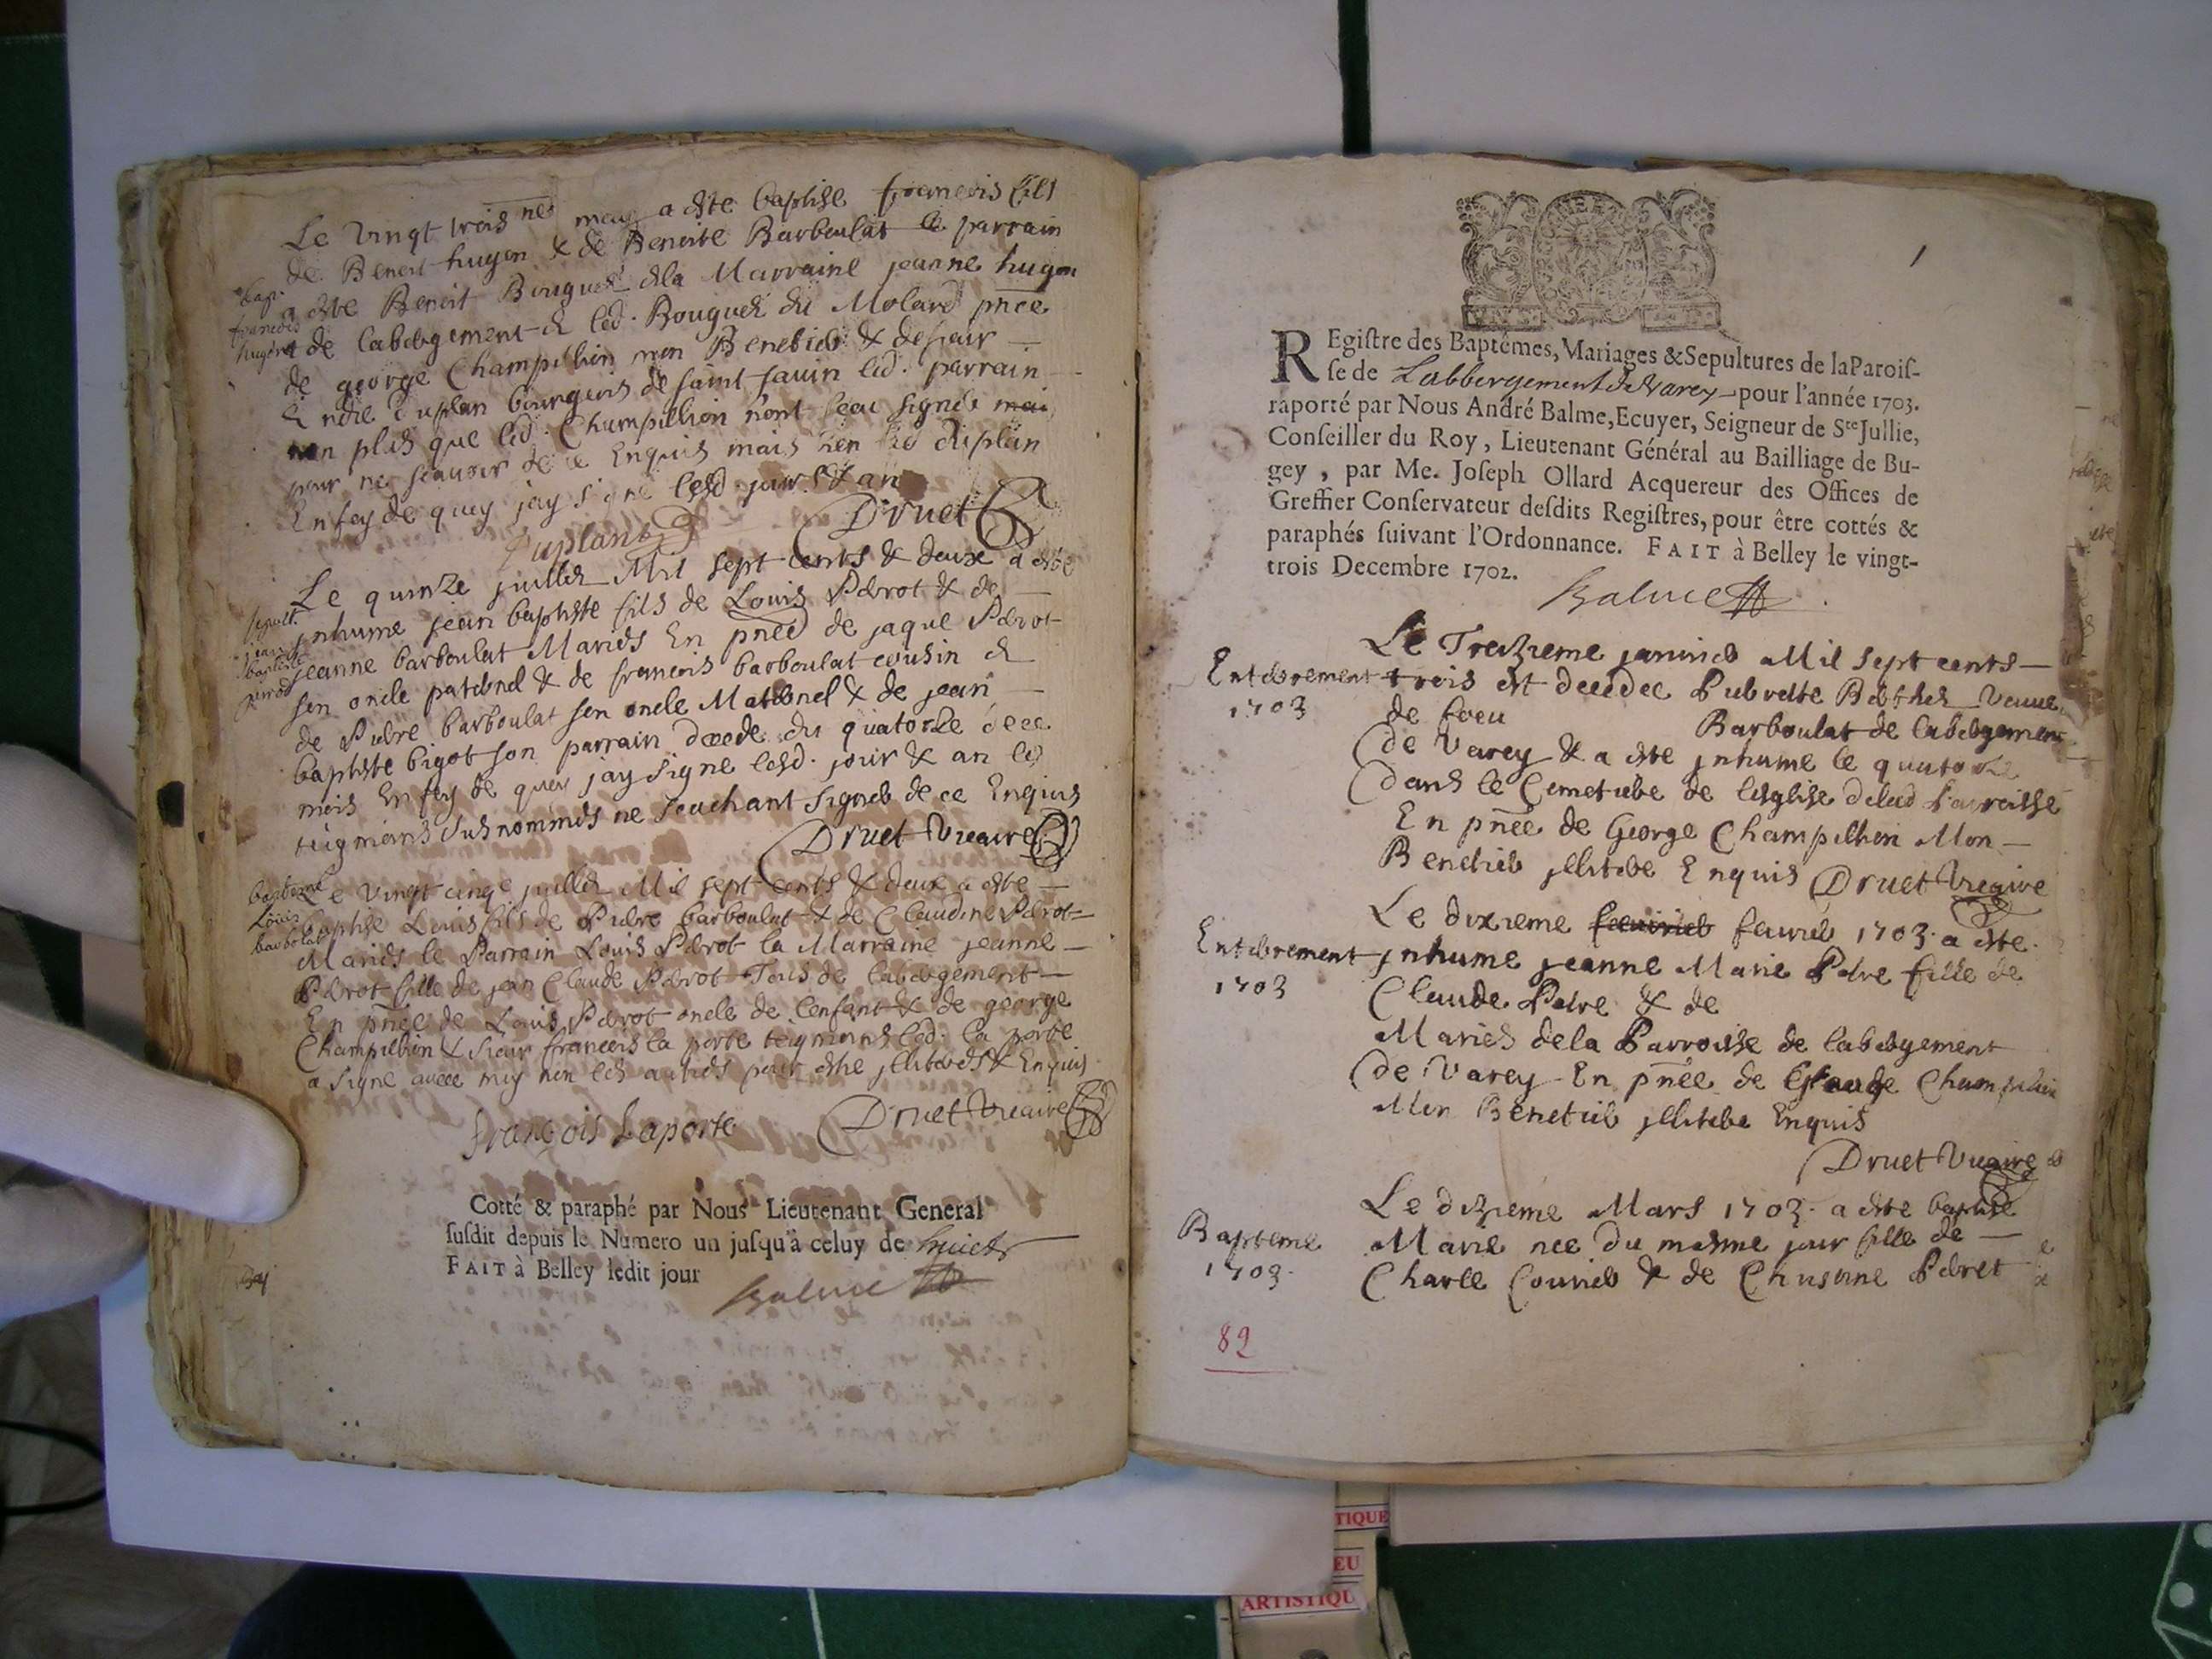 Le Vingt trois may a este baptise francois fils
de Benoit hugon & de Benoite Barboulat le parrain
a este Benoit Bouguet & la Marraine jeanne hugon
de labergement & led. Bouguet du Molard pnce
de george Champillion mon
bourgeois de saint led. parrain
non plus que led. Champillion n'ont sceu signer
pour ne scauoir de ce Enquis mais
En foy de quoy jay signé lesd. jour & an
bap.
francois
hugon
Duplant Druet
Le quinze juillet Mil sept cents & deux a este
inhume jean baptiste fils de Louis Perrot & de
jeanne barboulat Maries En pnce de jaque Perrot
son oncle paternel & de francois barboulat cousin &
de Pierre barboulat son oncle Maternel & de jean
baptiste bigot son parrain decede du quatorze
mois En foy de quoy jay signe lesd. jour & an les
teigmoins susnommes ne scachant signer de ce Enquis
Druet Vicaire
sepult.
jean
baptiste
perrot
Le Vingt cinq juillet Mil sept cents & deux a este
baptise Louis fils de Pierre barboulat & de Claudine Perrot
Maries le Parrain Louis Perrot la Marraine jeanne
Perrot fille de jean Claude Perrot Tous de labergement
En pnce de Louis Perrot oncle de lenfant & de george
Champillion & sieur francois la porte teigmoins led. la porte
a signe auec moy non les autres pour estre jlliteres & Enquis
bapteme
Louis
barbolat
françois Laporte Druet Vicaire
Cotté & paraphé par Nous Lieutenant General
susdit depuis le Numero un jusqu'à celuy de huict
FAIT à Belley ledit jour
Balme
1
REgistre des Baptêmes, Mariages & Sepultures de la Parois-
se de Labbergement de Varey pour l'année 1703.
raporté par Nous André Balme, Ecuyer, Seigneur de Ste Jullie,
Conseiller du Roy, Lieutenant Général au Bailliage de Bu-
gey, par Me. Joseph Ollard Acquereur des Offices de
Greffier Conservateur desdits Registres, pour être cottés &
paraphés suivant l'Ordonnance. FAIT à Belley le vingt-
trois Decembre 1702.
Balme
Enterrement
1703
Le Treizieme janvier Mil sept cents
trois est decedee Veuue
de feu Barboulat de labergement
de Varey & a este jnhume le quatorze
dans le Cemetiere de lesglise delad Parroisse
En pnce de George Champillion Mon
Benetier jllitere Enquis Druet Vicaire
Enterrement
1703
Le dixieme feurier 1703. a este
jnhume jeanne Marie fille de
Claude & de
Maries dela Parroisse de labergement
de Varey En pnce de Champillion
Mon Benetier jllitere Enquis
Druet Vicaire
Bapteme
1703.
Le dizieme Mars 1703. a este baptise
Marie nee du mesme jour fille de
Charle & de Perret
82
TIQUE
EU
ARTISTIQU